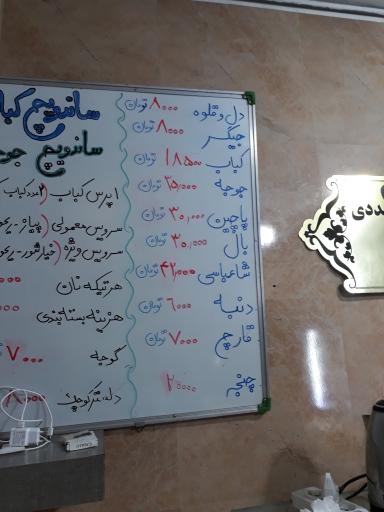 دل و قلوه ۸۰۰۰ تومان
جیگر ۸۰۰۰ تومان
کباب ۱۸۵۰۰ تومان
جوجه ۲۵,۰۰۰ تومان
پاچین ۳۰,۰۰۰ تومان
بال ۳۰,۰۰۰ تومان
شاه‌عباسی ۴۲,۰۰۰ تومان
دنبه ۶۰۰۰ تومان
قارچ ۷۰۰۰ تومان
چنجر ۲۰۰۰۰
ساندویچ
ساندویچ
۱ پرس کباب (۲ عدد کباب
سرویس معمولی (پیاز -
سرویس ویژه (خیارشور -
هر تیکه نان
هزینه بسته‌بندی
گوجه ۷۰۰۰
دلستر کوچک ۸۰۰۰
ددی